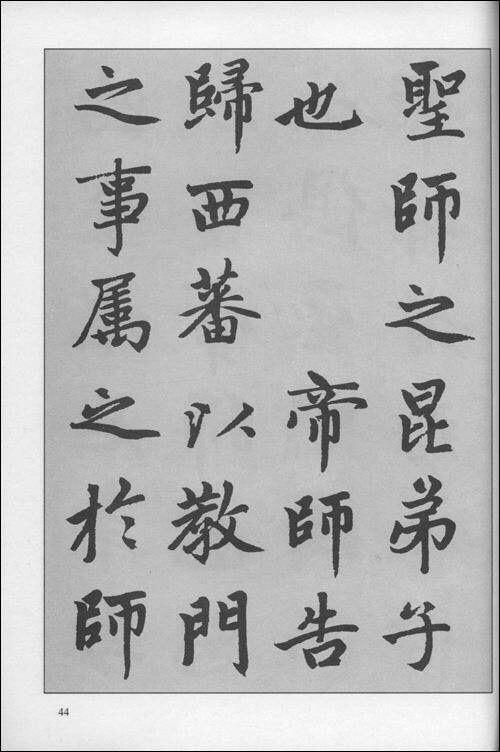 聖師之昆弟子
也　　帝師告
歸西蕃以教門
之事属之於師
44